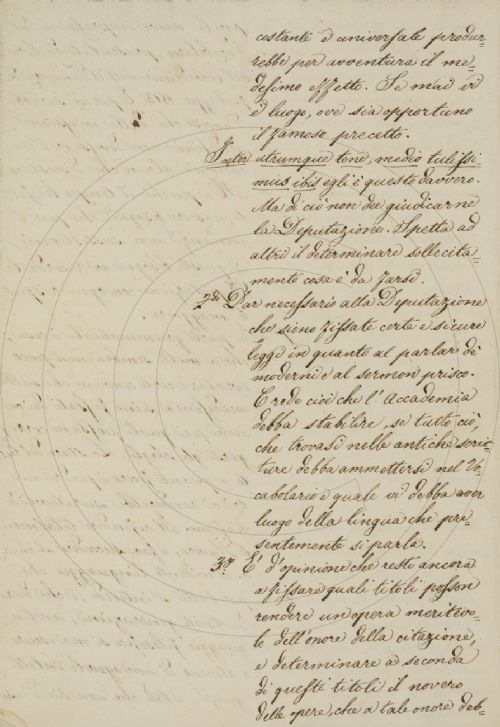 costante è universale produr=
rebbe per avventura il me=
desimo effetto. Se mai vi
è luogo, ove sia opportuno
il famoso precetto.
Inter utrumque tene, medio tulissi=
mus ibis egli è questo davvero.
Ma di ciò non dee giudicarne
la Deputazione. Spetta ad
altri il determinare sollecita=
mente cosa è da farsi.
2do Par necessario alla Deputazione
che sieno fissate certe e sicure
leggi in quanto al parlar de'
moderni e al sermon prisco.
Crede cioè che l'Accademia
debba stabilire, se tutto ciò,
che trovasi nelle antiche scrit=
ture debba ammettersi nel Vo=
cabolario e quale vi debba aver
luogo della lingua che pre=
sentemente si parla.
3o È d'opinione che resti ancora
a fissare quali titoli posson
rendere un opera meritevo=
le dell'onore della citazione,
e determinare a seconda
di questi titoli il novero
delle opere, che a tale onore deb=